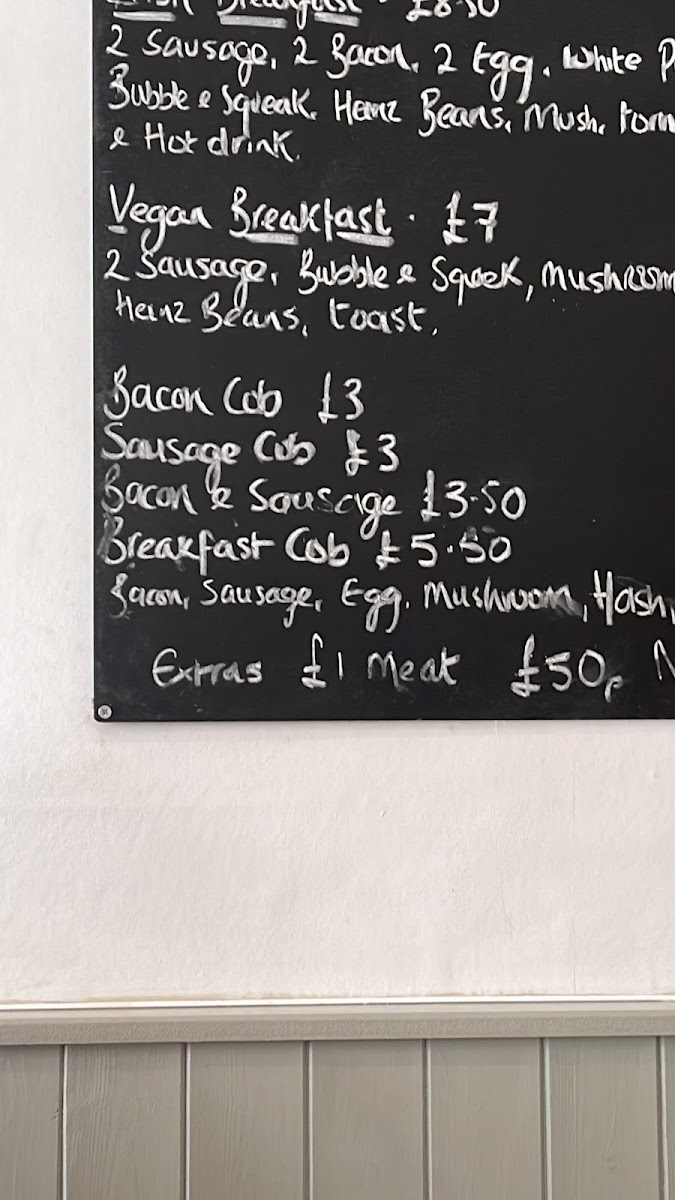 Breakfast · £8.50
2 Sausage, 2 Bacon, 2 Egg, White P
Bubble & Squeak, Heinz Beans, Mush, Tom
& Hot drink.
Vegan Breakfast · £7
2 Sausage, Bubble & Squeek, Mushroom
Heinz Beans, toast,
Bacon Cob £3
Sausage Cob £3
Bacon & Sausage £3.50
Breakfast Cob £5.50
Bacon, Sausage, Egg, Mushroom, Hash,
Extras £1 Meat £50p